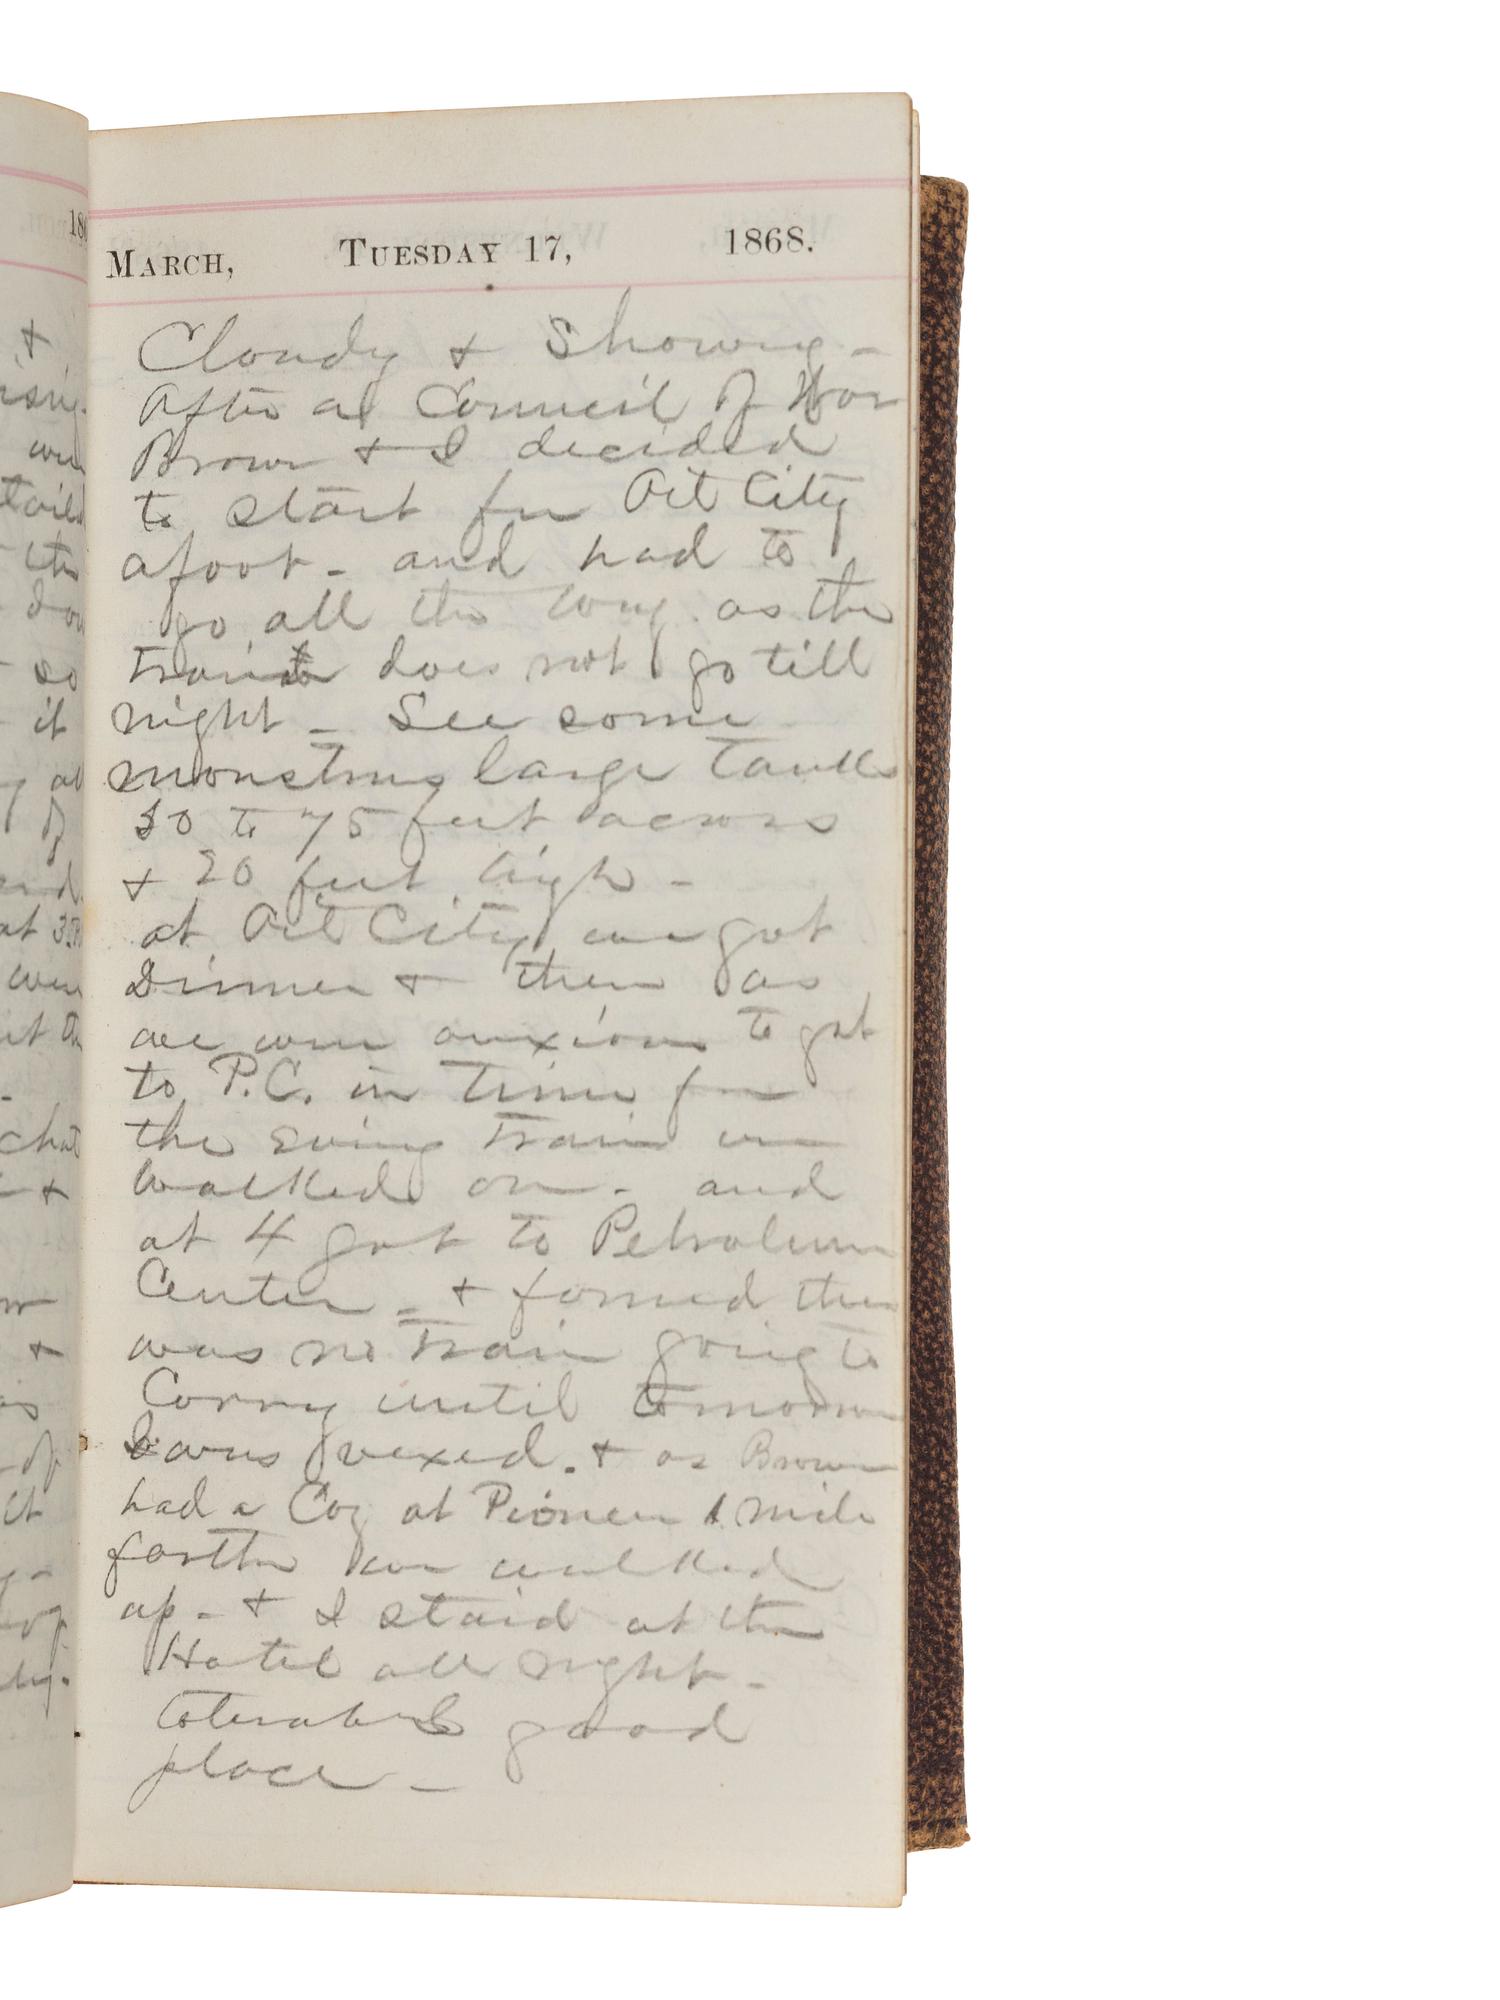 March, Tuesday 17, 1868.
Cloudy & Showery -
After a Council of War
Brown & I decided
to start for Oil City
afoot - and had to
go all the way. as the
train does not go till
night - See some
monstrous large tanks
50 to 75 feet across
& 20 feet high -
at Oil City we got
Dinner & then as
we were anxious to get
to P.C. in time for
the evening train we
walked on - and
at 4 got to Petroleum
Center - & found there
was no train going to
Corry until tomorrow
I was vexed. & as Brown
had a Coz at Pioneer 1 mile
farther we walked
up - & I staid at the
Hotel all night -
tolerable good
place -
+
it
so
&